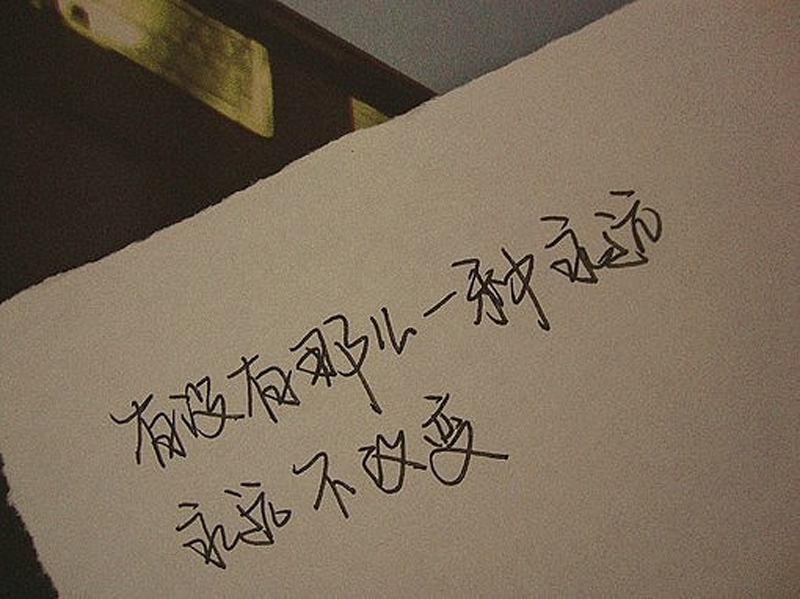 有没有那么一种永远
永远不改变